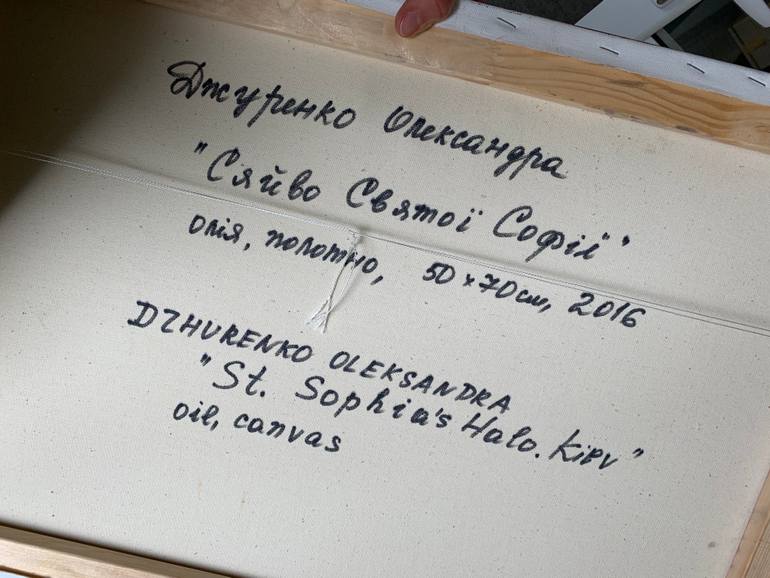 Джуренко Олександра
"Сяйво Святої Софії"
олія, полотно, 50×70см, 2016
DZHURENKO OLEKSANDRA
"St. Sophia's Halo. Kiev"
oil, canvas